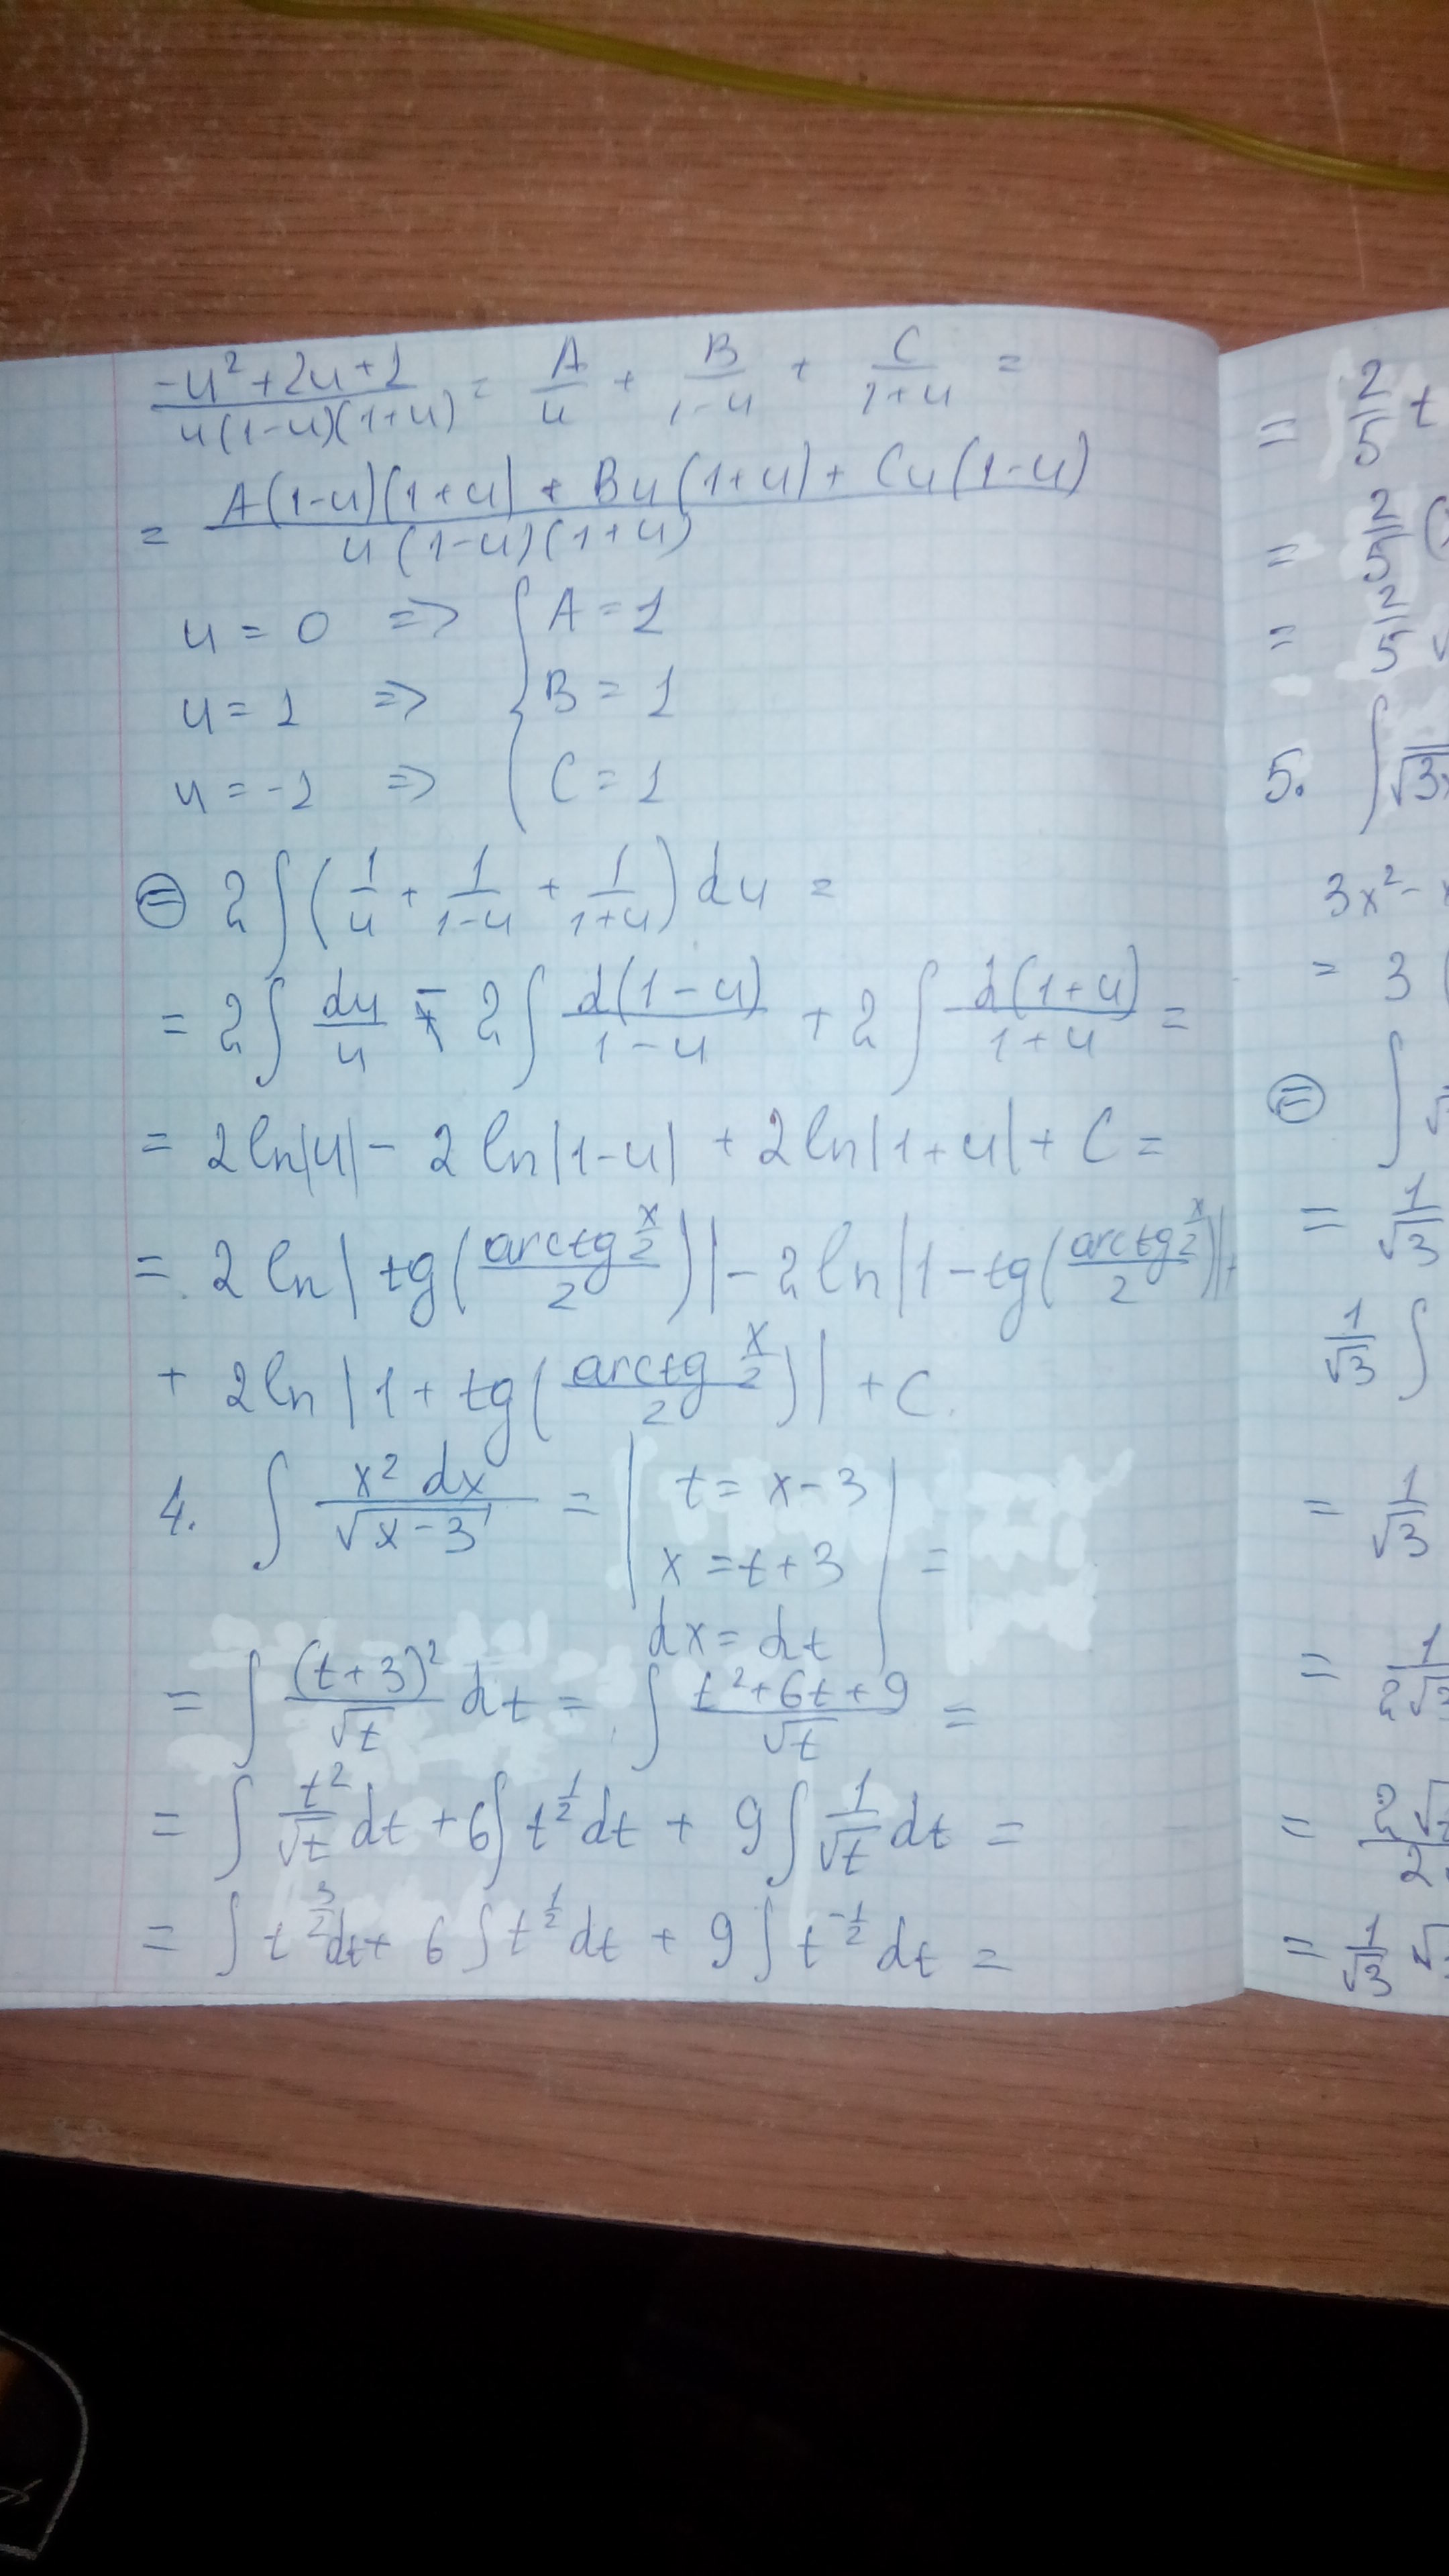 (-u²+2u+1)/(u(1-u)(1+u)) = A/u + B/(1-u) + C/(1+u) =
= (A(1-u)(1+u) + Bu(1+u) + Cu(1-u))/(u(1-u)(1+u))
u = 0 => { A = 1
u = 1 => { B = 1
u = -1 => { C = 1
⊜ 2∫(1/u + 1/(1-u) + 1/(1+u)) du =
= 2∫ du/u - 2∫ d(1-u)/(1-u) + 2∫ d(1+u)/(1+u) =
= 2ln|u| - 2ln|1-u| + 2ln|1+u| + C =
= 2 ln|tg((arctg x/2)/2)| - 2 ln|1 - tg((arctg x/2)/2)| +
+ 2ln|1 + tg((arctg x/2)/2)| + C.
4. ∫ x² dx/√(x-3) = | t = x-3
x = t+3 | =
dx = dt
= ∫ (t+3)²/√t dt = ∫ (t²+6t+9)/√t =
= ∫ t²/√t dt + 6∫ t^(1/2) dt + 9∫ 1/√t dt =
= ∫ t^(3/2) dt + 6∫ t^(1/2) dt + 9∫ t^(-1/2) dt =
= 2/5 t
= 2/5 (
= 2/5 √
5. ∫ √3x
3x² -
= 3 (
⊜ ∫
= 1/√3
1/√3 ∫
= 1/√3
= 1/2√3
= 2√
= 1/√3 √